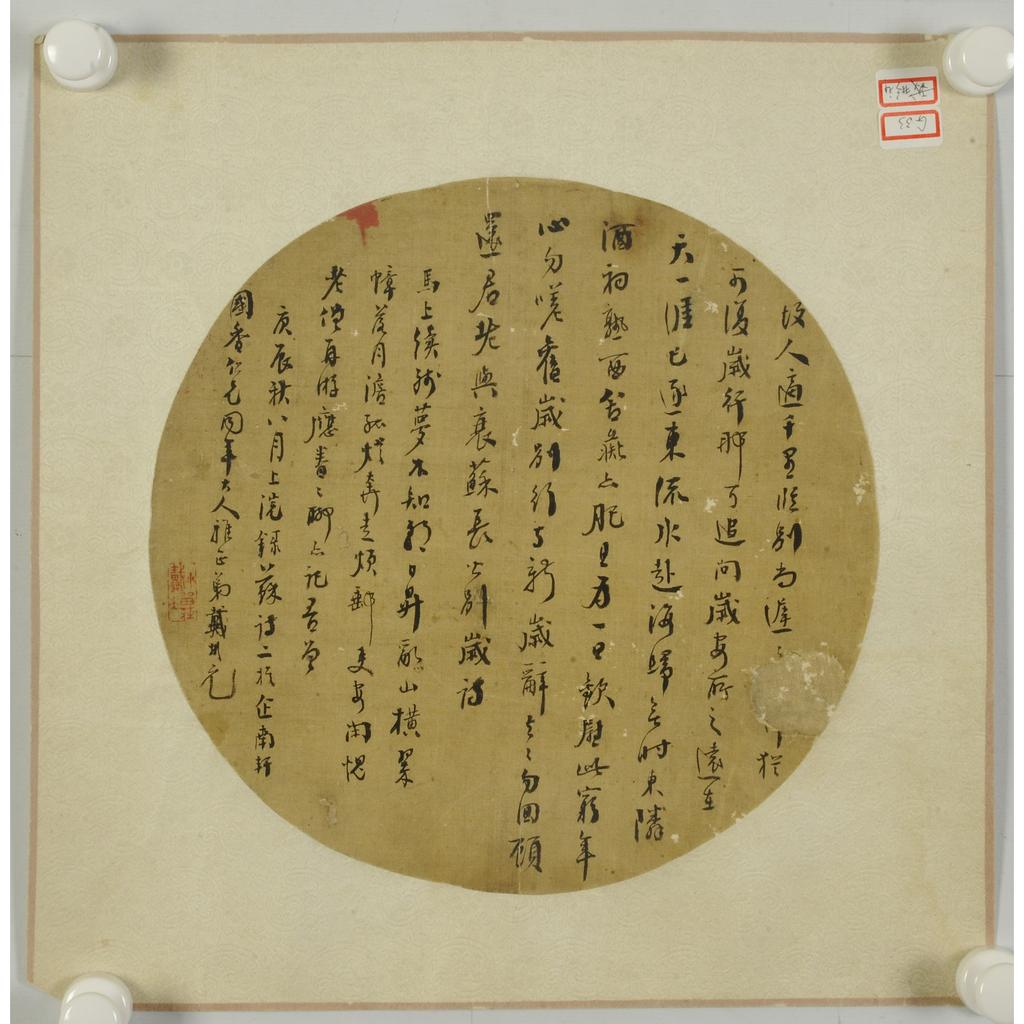 故人適千里臨別尚遲〻行猶
可復歲行那可追問歲安所之遠在
天一涯已逐東流水赴海歸無時東隣
酒初熟西舍彘亦肥且为一日歡慰此窮年
心勿嗟舊歲別行与新歲辭去〻勿回顧
還君老與衰蘇長公別歲詩
馬上續殘夢不知朝日昇亂山橫翠
幛落月澹孤燈奔走煩郵吏安閑愧
老僧再游應眷〻聊亦記吾曾
庚辰秋八月上浣錄蘇詩二於企南軒
國香仁兄同年大人雅正弟戴彬元
G33